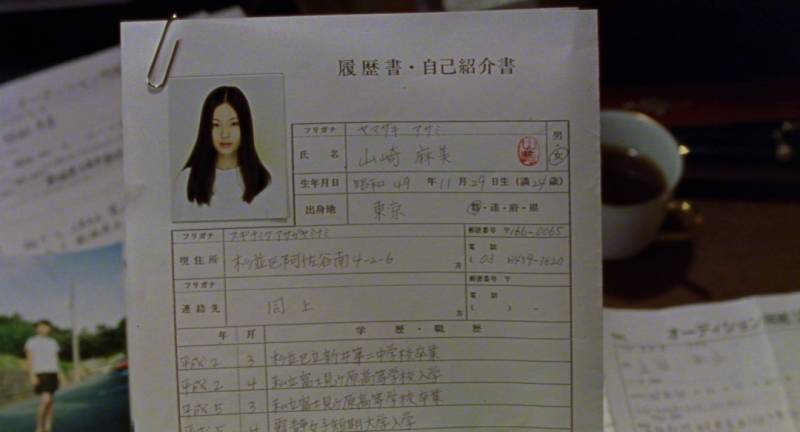 履歴書・自己紹介書
フリガナ ヤマザキ アサミ
氏名 山崎 麻美
男・女
生年月日 昭和 49 年 11 月 29 日生 (満 24 歳)
出身地 東京 都・道・府・県
フリガナ スギナミクアサガヤミナミ
郵便番号 〒166-0065
現住所 杉並区阿佐谷南4-2-6 方
電話 (03)
フリガナ
郵便番号 〒
連絡先 同上 方
電話 ( ) -
年 月 学歴・職歴
平成2 3 杉並区立新井第二中学校卒業
平成2 4 私立富士見ヶ原高等学校入学
平成5 3 私立富士見ヶ原高等学校卒業
4 女子短期大学入学
オーディション